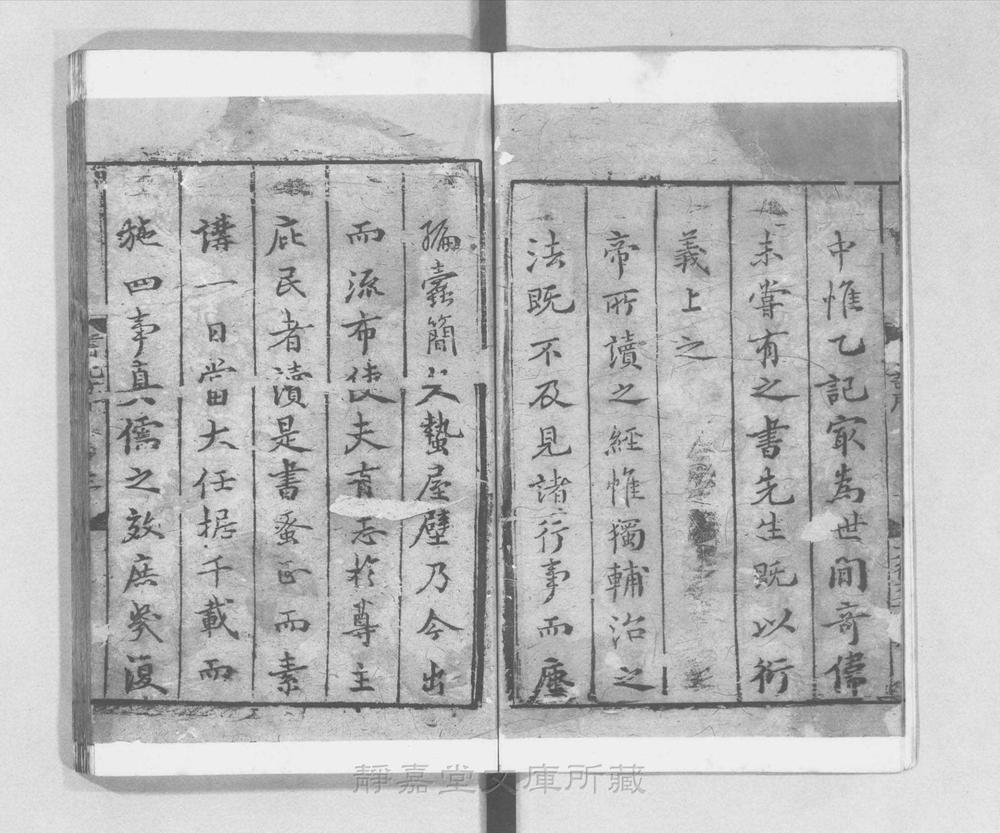 中惟乙記最為世間奇偉
未嘗有之書先生既以衍
義上之
帝所讀之經惟獨輔治之
法既不及見諸行事而塵
編蠹簡又蟄屋壁乃今出
而流布使夫有志於尊主
庇民者讀是書蚤正而素
講一日當大任据千載而
施四事真儒之效庶幾復
靜嘉堂文庫所藏